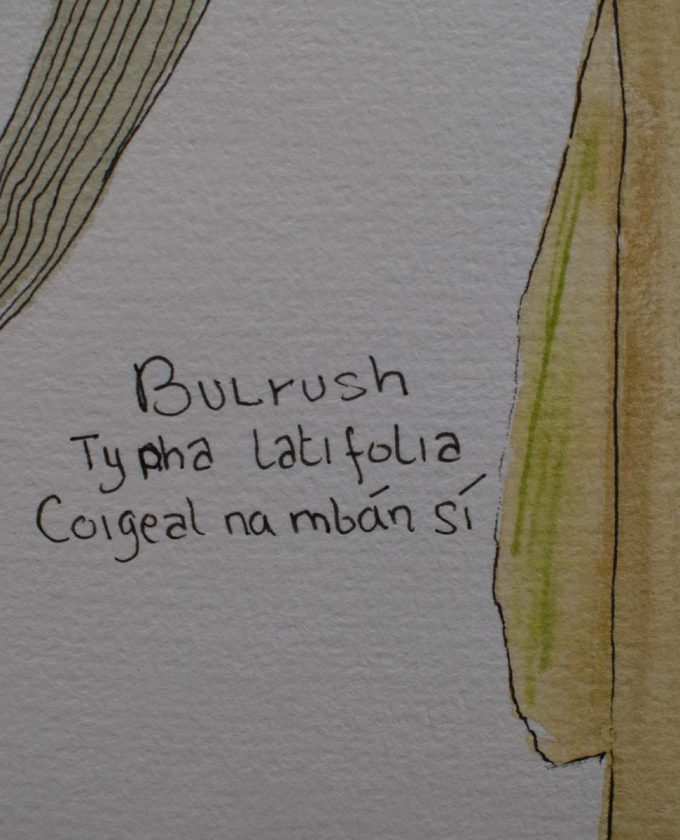 Bulrush
Typha latifolia
Coigeal na mbán sí